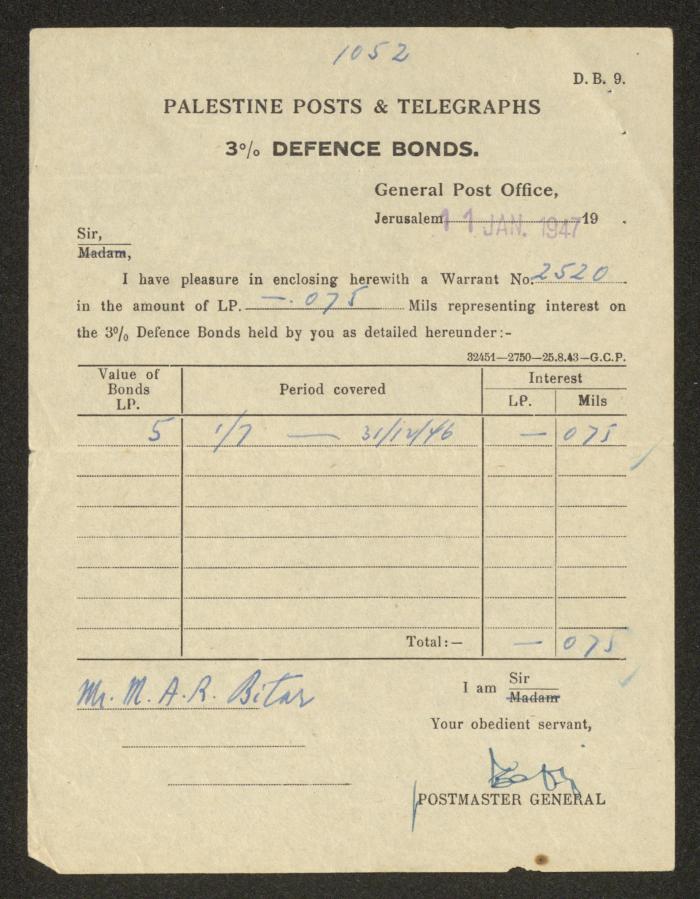 1052
D. B. 9.
PALESTINE POSTS & TELEGRAPHS
3% DEFENCE BONDS.
General Post Office,
Jerusalem 11 JAN. 1947 19 .
Sir,
Madam,
I have pleasure in enclosing herewith a Warrant No. 2520
in the amount of LP. —.075 Mils representing interest on
the 3% Defence Bonds held by you as detailed hereunder:-
32451—2750—25.8.43—G.C.P.
Value of Bonds LP. Period covered Interest
LP. Mils
5 1/7 — 31/12/46 — 075
Total:— — 075
Mr. M. A. R. Bitar
I am Sir
Madam
Your obedient servant,
POSTMASTER GENERAL